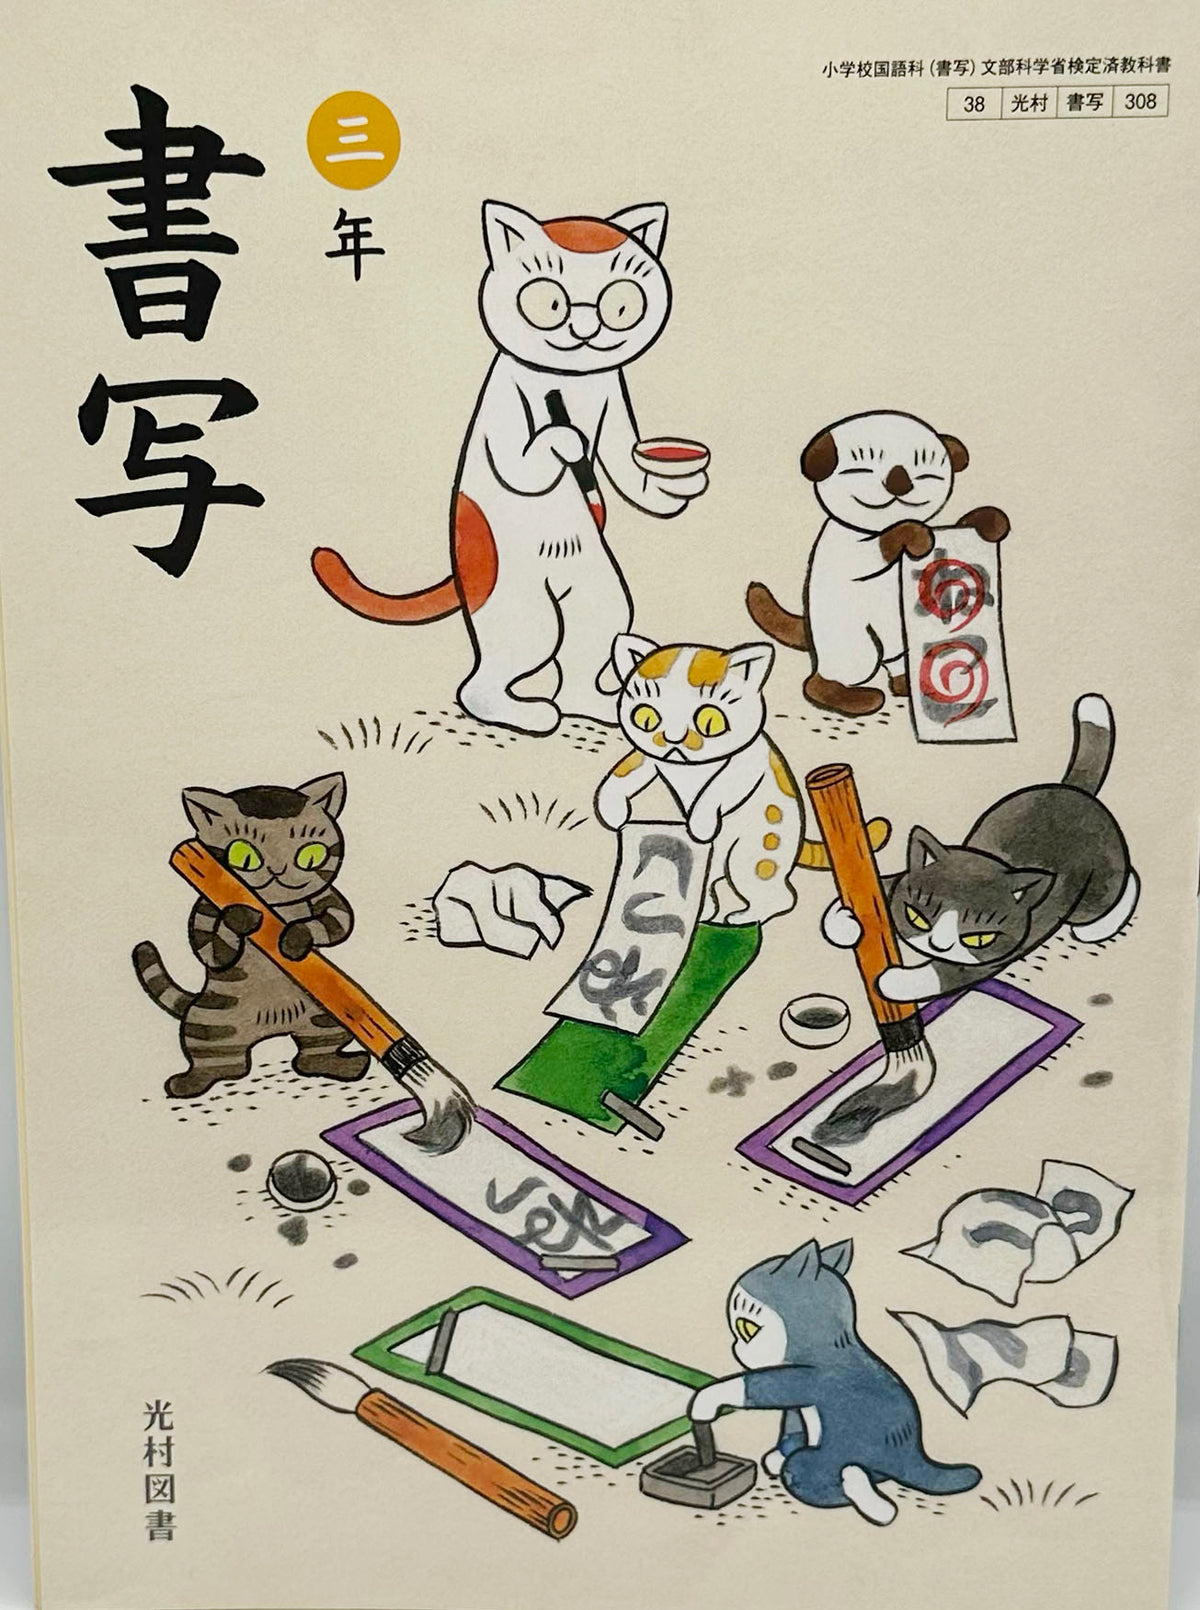 小学校国語科(書写)文部科学省検定済教科書
38 光村 書写 308
書写
三年
光村図書